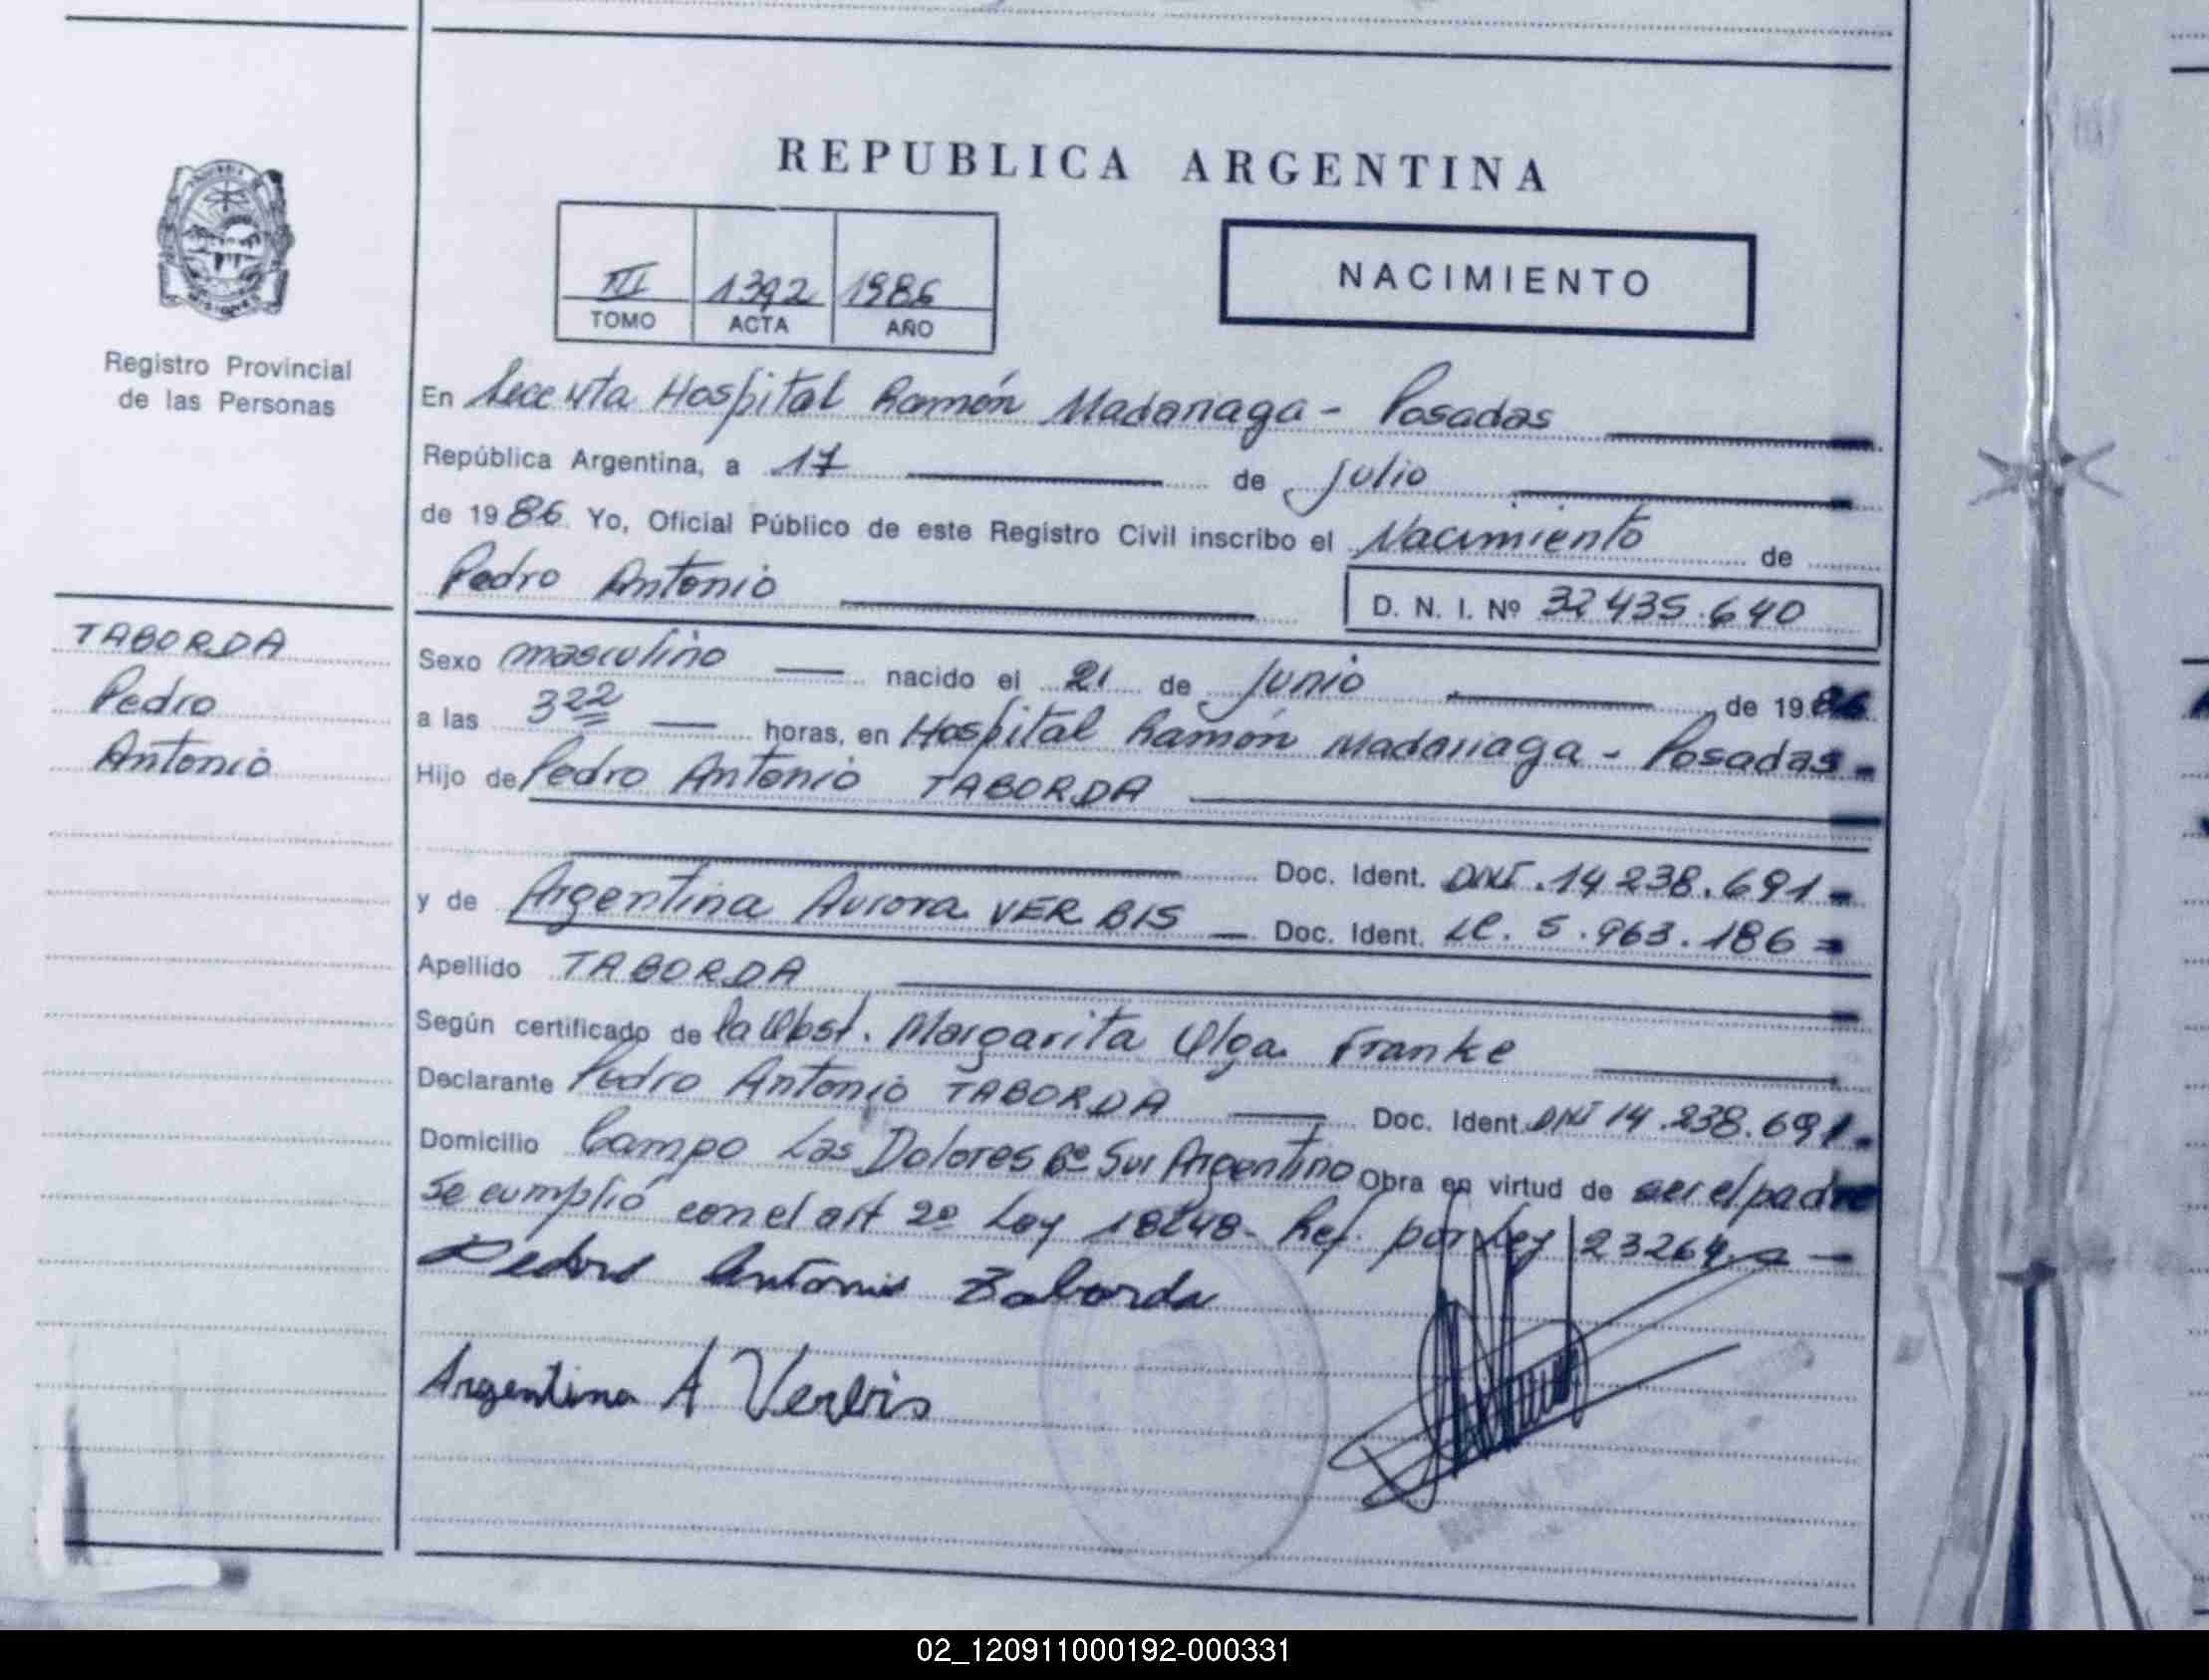 REPUBLICA ARGENTINA
NACIMIENTO
III 1392 1986
TOMO ACTA AÑO
Registro Provincial
de las Personas
En Secc 4ta Hospital Ramón Madariaga - Posadas
República Argentina, a 17 de Julio
de 1986 Yo, Oficial Público de este Registro Civil inscribo el Nacimiento de
Pedro Antonio
D. N. I. Nº 32435.640
TABORDA
Pedro
Antonio
Sexo masculino nacido el 21 de Junio de 1986
a las 3 22 horas, en Hospital Ramón Madariaga - Posadas -
Hijo de Pedro Antonio TABORDA
Doc. Ident. DNI. 14238.691 -
y de Argentina Aurora VERBIS — Doc. Ident. LC. 5.963.186 =
Apellido TABORDA
Según certificado de la Obst. Margarita Olga Franke
Declarante Pedro Antonio TABORDA — Doc. Ident. DNI 14.238.691 -
Domicilio Campo Las Dolores Bº Sur Argentino Obra en virtud de ser el padre
Se cumplió con el art 2º Ley 18248 - Ref. por Ley 23264
Pedro Antonio Taborda
Argentina A Verbis
02_120911000192-000331